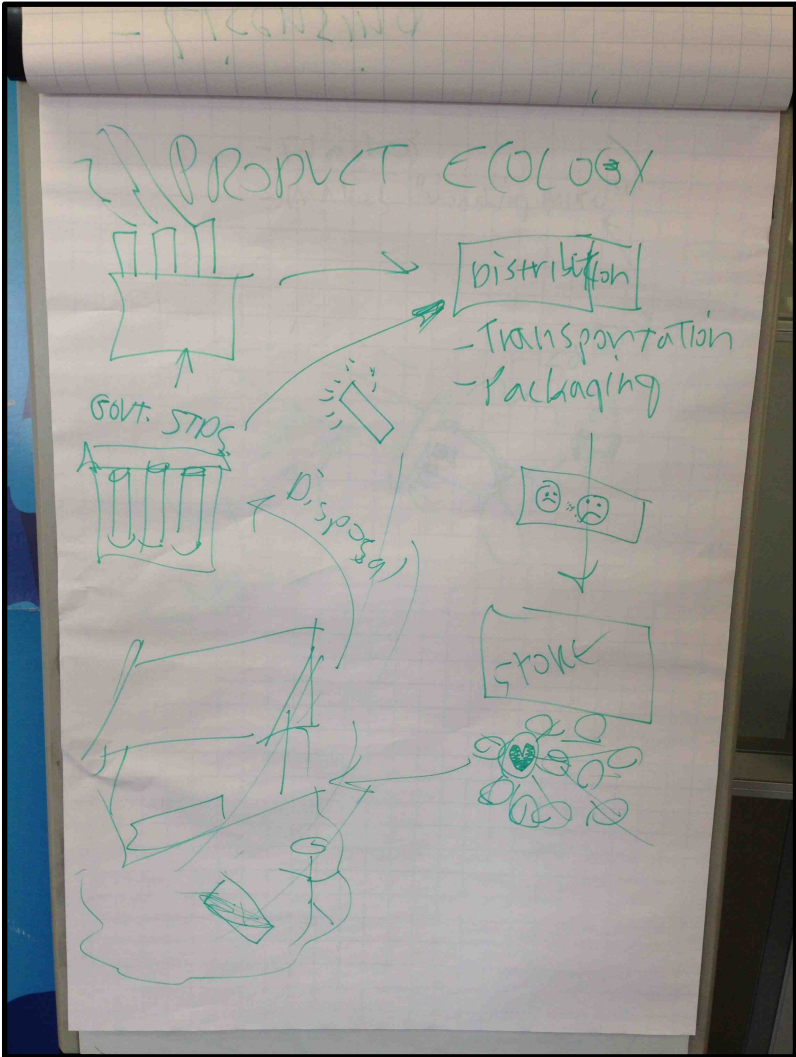 PRODUCT ECOLOGY
Distribution
-Transportation
-Packaging
GOVT. STDS
Disposal
STORE